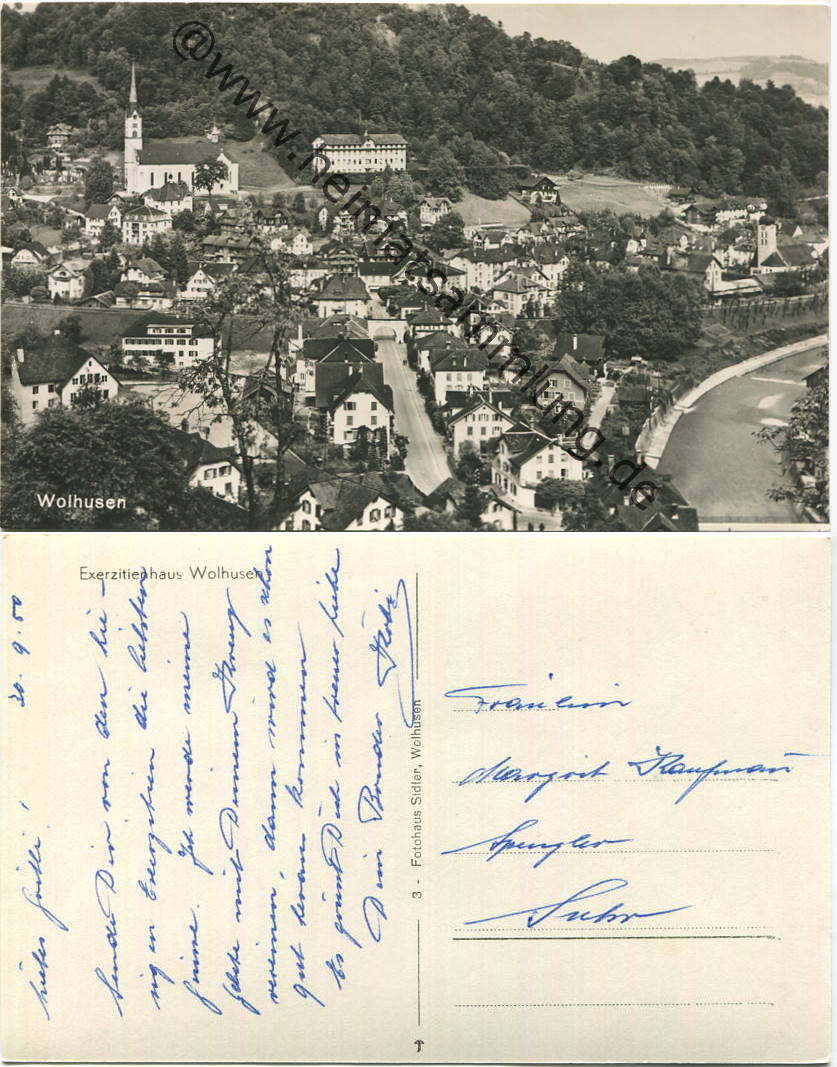 @www.heimatsammlung.de
Wolhusen
Exerzitienhaus Wolhusen
20. 9. 50
Liebes Gritli!
Sende Dir von den hie-
sigen Exerzitien die liebsten
Grüsse. Ich werde meine
mit Deinem Kreuz
vereinen, dann wird es schon
gut heraus kommen
Es grüsst Dich in treuer Liebe
Dein Bruder
3 - Fotohaus Sidler, Wolhusen
Fräulein
Margrit Kaufmann
Spengler
Suhr